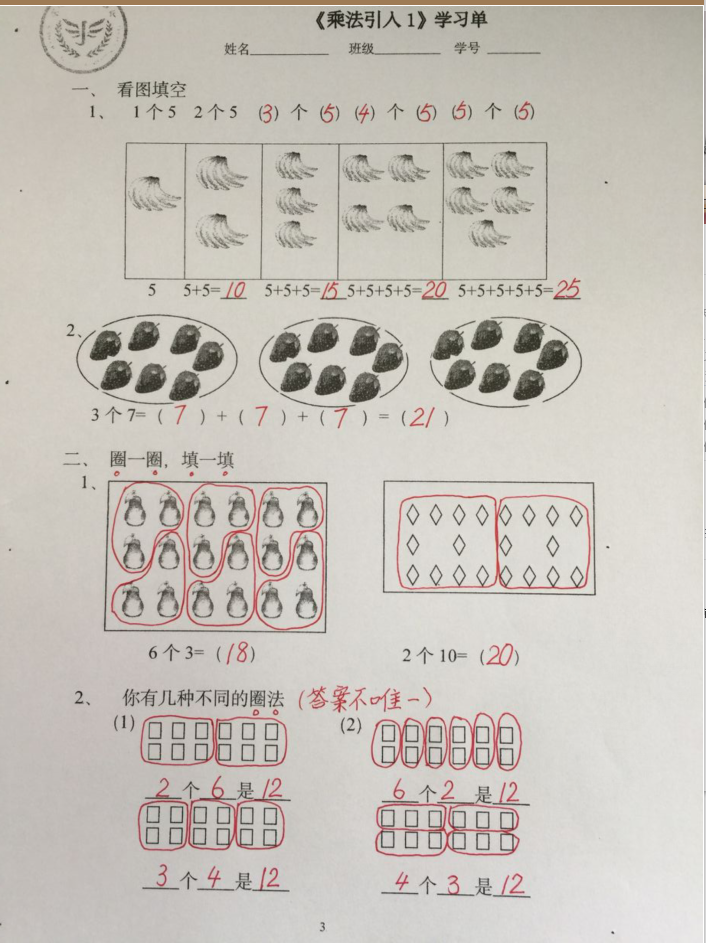 《乘法引入1》学习单
姓名__________ 班级__________ 学号 ________
一、 看图填空
1、 1个5 2个5 (3)个(5) (4)个(5) (5)个(5)
5 5+5=10 5+5+5=15 5+5+5+5=20 5+5+5+5+5=25
2、
3个7=( 7 )+( 7 )+( 7 )=( 21 )
二、 圈一圈，填一填
1、
6个3=(18) 2个10=(20)
2、 你有几种不同的圈法 (答案不唯一)
(1) (2)
2个6是12 6个2是12
3个4是12 4个3是12
3